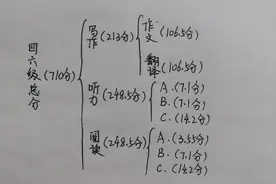 四六级总分(710分)
写作(213分)
作文(106.5分)
翻译(106.5分)
听力(248.5分)
A.(7.1分)
B.(7.1分)
C.(14.2分)
阅读(248.5分)
A.(3.55分)
B.(7.1分)
C.(14.2分)